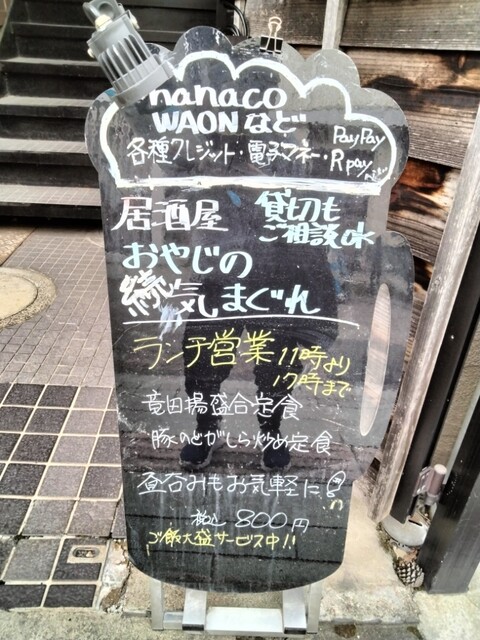 nanaco
WAONなど
各種クレジット・電子マネー・
PayPay
R pay
居酒屋
貸切も
ご相談ok
おやじの
気まぐれ
ランチ営業 11時より
17時まで
竜田揚盛合定食
豚のとがしら炒め定食
昼呑みもお気軽に
税込 800円
ご飯大盛サービス中!!